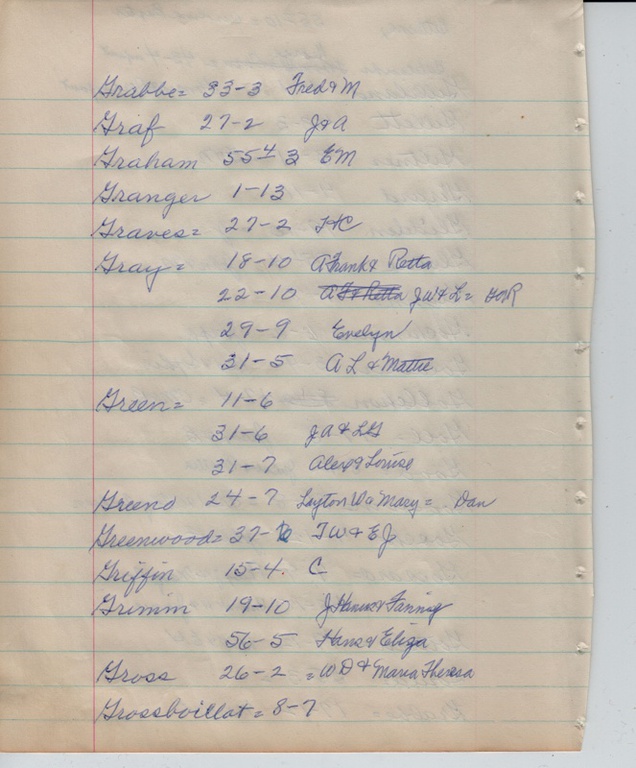 Grabbe= 33-3 Fred & M
Graf 27-2 J & A
Graham 55 4 3 EM
Granger 1-13
Graves= 27-2
Gray = 18-10 A Frank & Retta
22-10 A F & Retta J W & L =
29-9 Evelyn
31-5 A L & Mattie
Green= 11-6
31-6 J A & LG
31-7 Alex & Louise
Greeno 24-7 Layton W & Mary = Dan
Greenwood= 37- T W & E J
Griffin 15-4. C
Grimm 19-10 J Hans & Fannig
56-5 Hans & Eliza
Gross 26-2 = W D & Maria Theresa
Grossboillat = 8-7